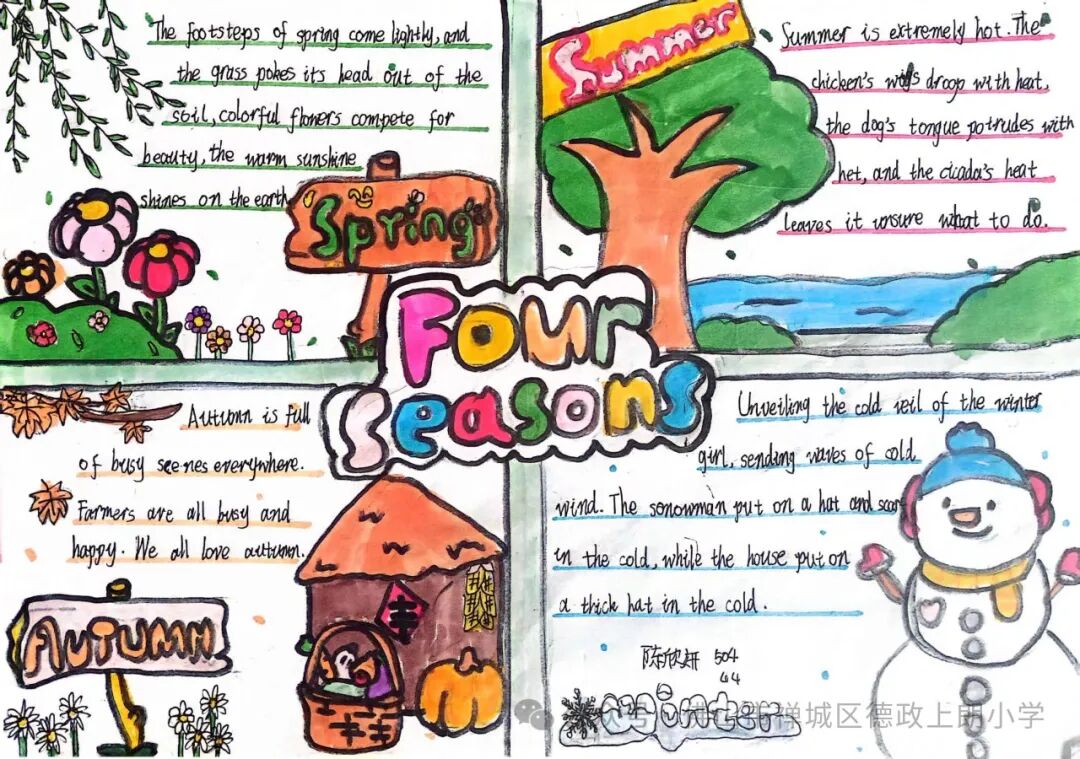 The footsteps of spring come lightly, and
the grass pokes its head out of the
soil, colorful flowers compete for
beauty, the warm sunshine
shines on the earth
Spring
Summer
Summer is extremely hot. The
chicken's droop with heat,
the dog's tongue potrudes with
het, and the cicada's heat
leaves it unsure what to do.
Four
Seasons
Autumn is full
of busy scenes everywhere.
Farmers are all busy and
happy. We all love autumn.
AUTUMN
Unveiling the cold veil of the winter
girl, sending waves of cold
wind. The sonowman put on a hat and scar
in the cold, while the house put on
a thick hat in the cold.
陈欣妍 504
44
winter
禅城区德政上朗小学